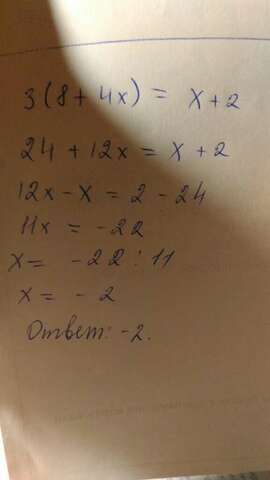 3(8+4x) = x+2
24 + 12x = x + 2
12x - x = 2 - 24
11x = -22
x = -22 : 11
x = - 2
Ответ: -2.